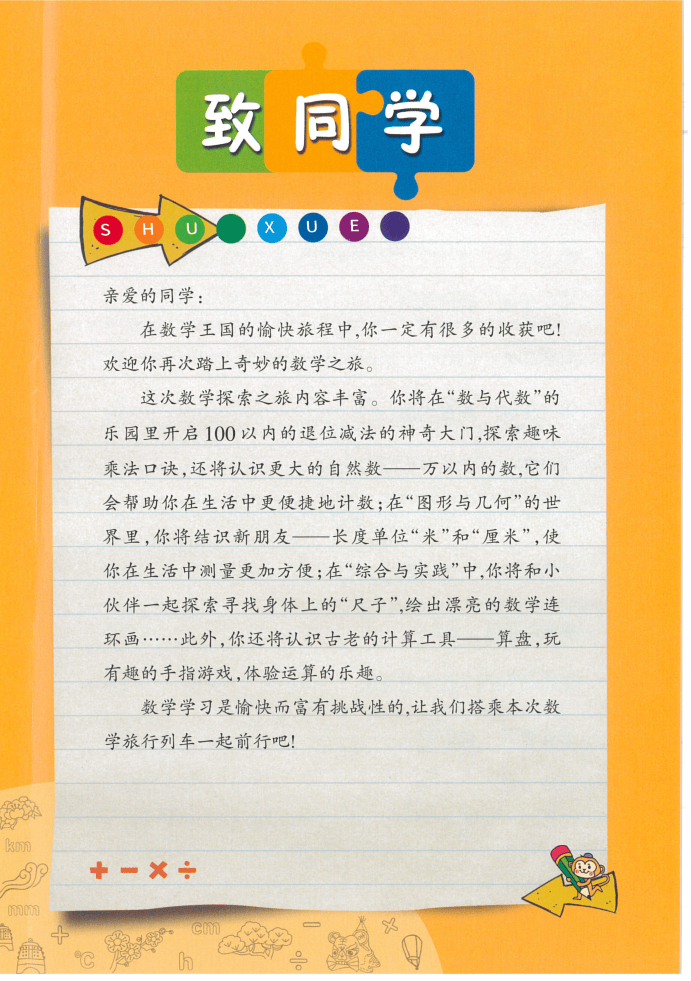 致同学
SHU XUE
亲爱的同学：
在数学王国的愉快旅程中,你一定有很多的收获吧!
欢迎你再次踏上奇妙的数学之旅。
这次数学探索之旅内容丰富。你将在“数与代数”的
乐园里开启100以内的退位减法的神奇大门,探索趣味
乘法口诀,还将认识更大的自然数——万以内的数,它们
会帮助你在生活中更便捷地计数;在“图形与几何”的世
界里,你将结识新朋友——长度单位“米”和“厘米”,使
你在生活中测量更加方便;在“综合与实践”中,你将和小
伙伴一起探索寻找身体上的“尺子”,绘出漂亮的数学连
环画……此外,你还将认识古老的计算工具——算盘,玩
有趣的手指游戏,体验运算的乐趣。
数学学习是愉快而富有挑战性的,让我们搭乘本次数
学旅行列车一起前行吧!
+ - × ÷
km
mm
+
℃
h
cm
-
÷
×